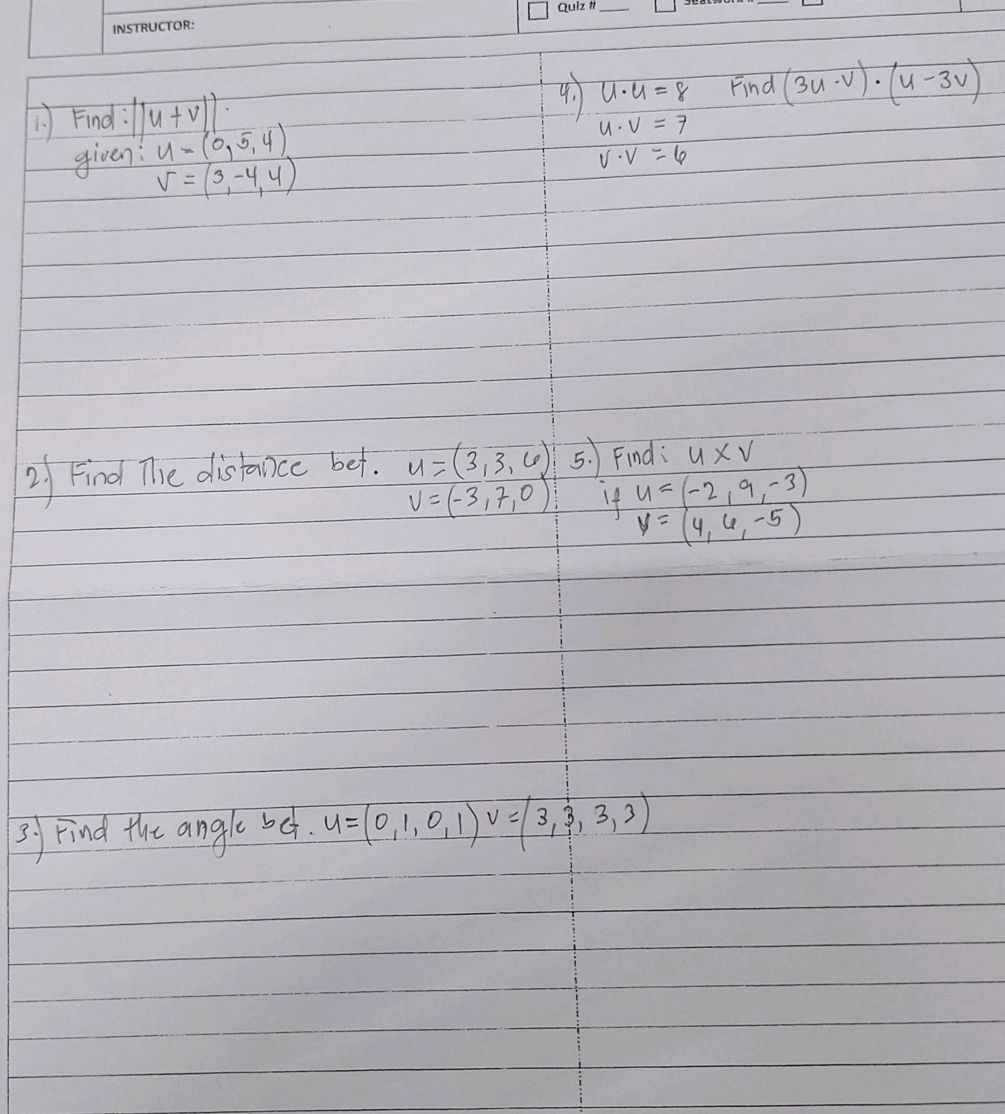 INSTRUCTOR:
Quiz #
1.) Find: ||u + v||.
given: u = (0, 5, 4)
v = (3, -4, 4)
2.) Find The distance bet. u = (3, 3, 6)
v = (-3, 7, 0)
3.) Find the angle bet. u = (0, 1, 0, 1) v = (3, 3, 3, 3)
4.) u·u = 8 Find (3u - v) · (u - 3v)
u·v = 7
v·v = 6
5.) Find: u x v
if u = (-2, 9, -3)
v = (4, 6, -5)